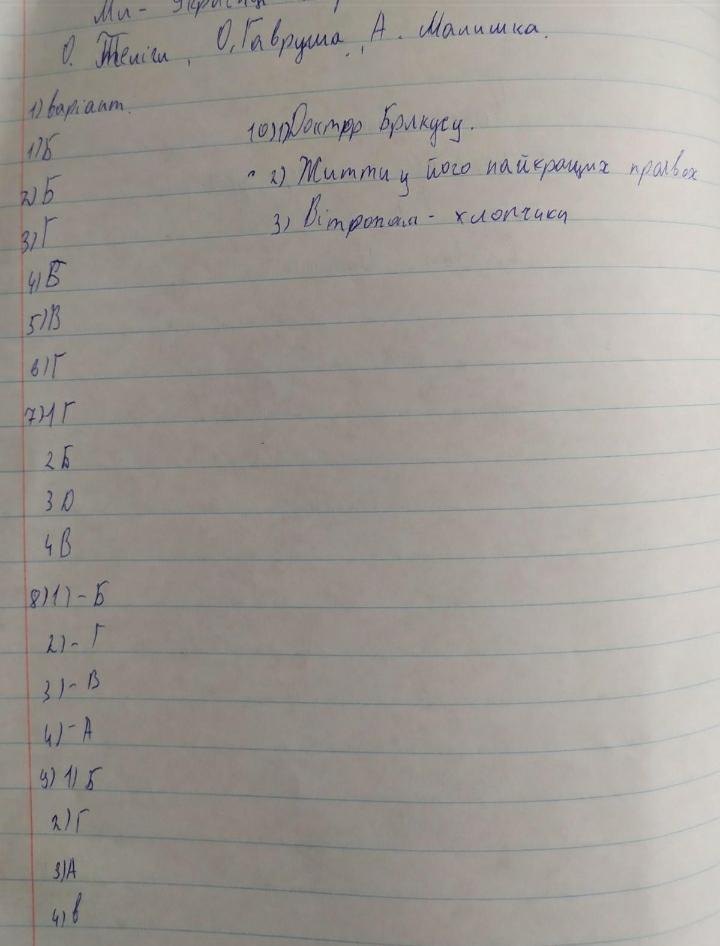 Ми -
О. Теліги, О. Гавруша, А. Малишка.
1) варіант.
1) Б
2) Б
3) Г
4) Б
5) В
6) Г
7) 1 Г
2 Б
3 D
4 В
8) 1) - Б
2) - Г
3) - В
4) - А
9) 1) Б
2) Г
3) А
4) в
10) 1) Доктор
2) Житти у його найкращих
3) - хлопчики